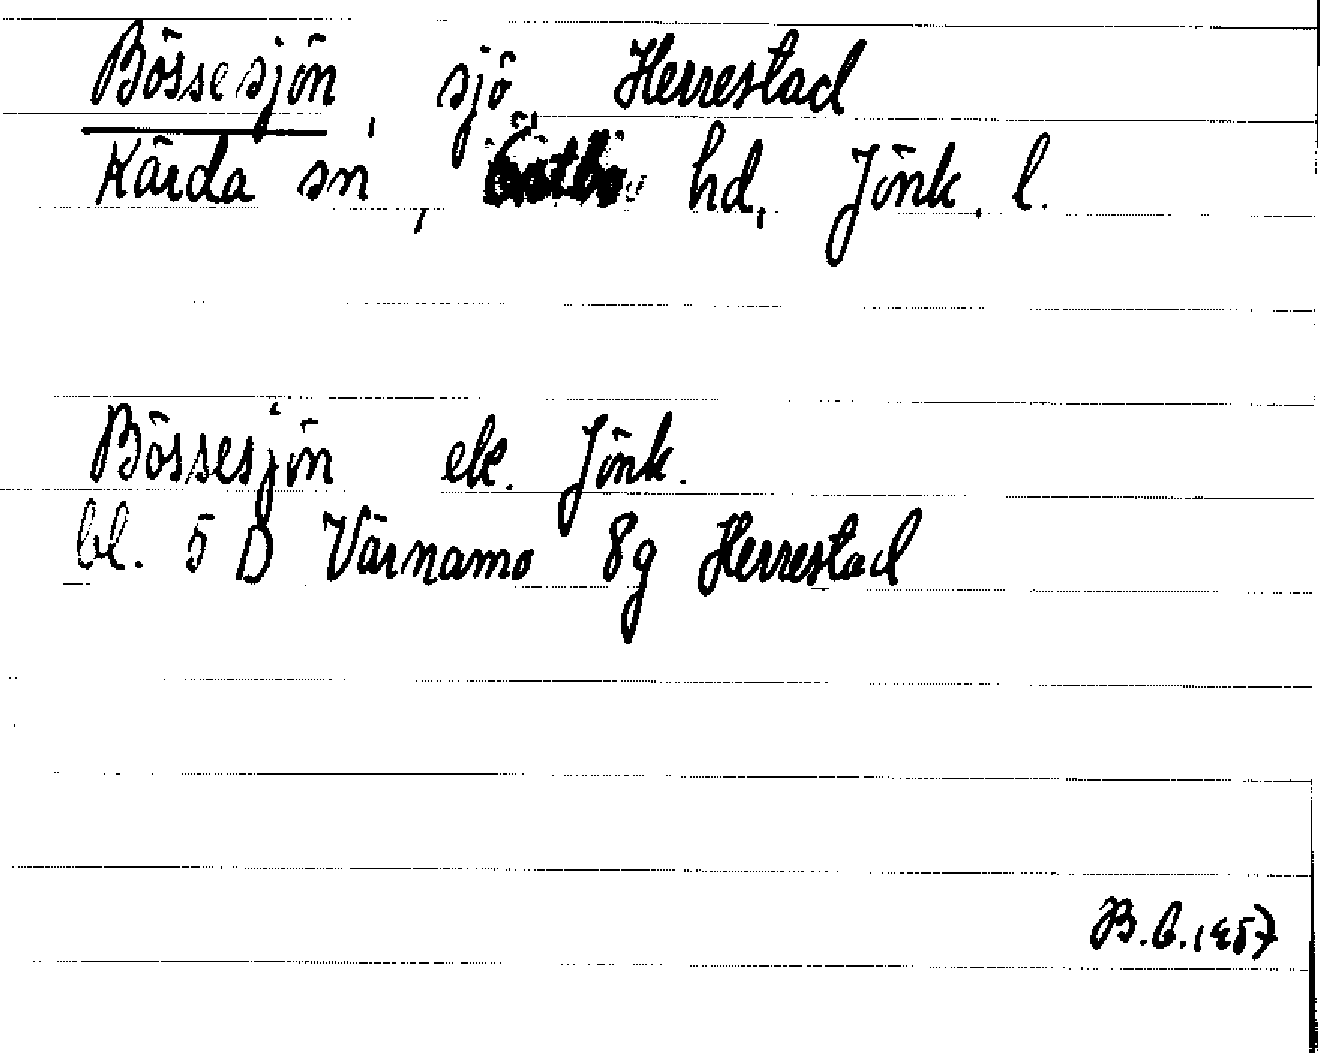 Bössesjön, sjö Herrestad
Kärda sn, Östbo hd, Jönk. l.
Bössesjön ek. Jönk.
bl. 5 D Värnamo 8g Herrestad
B.C. 1957